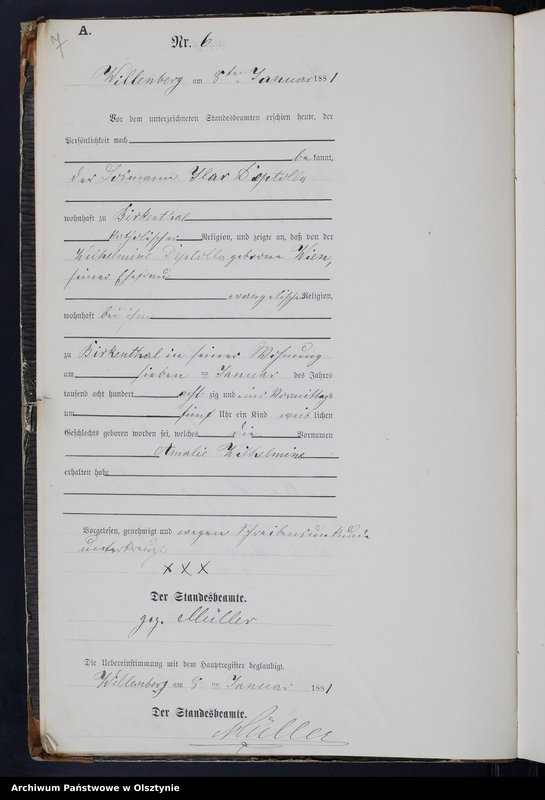 7
A.
Nr. 6
Willenberg am 8ten Januar 1881
Vor dem unterzeichneten Standesbeamten erschien heute, der
Persönlichkeit nach
bekannt,
der Losmann
wohnhaft zu Birkenthal
katholischer Religion, und zeigte an, daß von der
Wilhelmine geborne Wien,
seiner Ehefrau
evangelischer Religion,
wohnhaft bei ihm
zu Birkenthal in seiner Wohnung
am sieben ten Januar des Jahres
tausend acht hundert acht zig und eins Vormittags
um fünf Uhr ein Kind weib lichen
Geschlechts geboren worden sei, welches die Vornamen
Amalie Wilhelmine
erhalten habe
Vorgelesen, genehmigt und wegen Schreibensunkunde
unterkreuzt
x x x
Der Standesbeamte.
gez. Müller
Die Uebereinstimmung mit dem Hauptregister beglaubigt.
Willenberg am 8 ten Januar 1881
Der Standesbeamte.
Müller
Archiwum Państwowe w Olsztynie